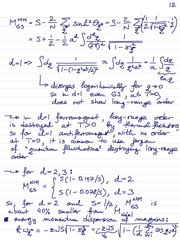 12
M_GS^NM = S - 2/N Σ_q sinh² θ_q = S - 2/N Σ_q (1/2 1/√(1-γ_q²) - 1/2)
= S + 1/2 - 1/2 a^d ∫ d^dq/(2π)^d 1/√(1-γ_q²)
d=1 → ∫dq 1/√(1-(1-q²a²/2)²) ≈ ∫dq 1/qa = 1/a ∫ dq/q
diverges logarithmically for q→0
so in d=1 even S, at T=0,
does not show long-range order
→ in d=1 ferromagnet, long-range order
is destroyed at T>0 by thermal fluctuations
so for d=1 antiferromagnet with no order
at T=0, it is common to use jargon
of "quantum fluctuations" destroying long-range
order
→ for d=2,3:
M_GS^NM = { S(1-0.197/S), d=2
S(1-0.078/S), d=3
so for d=2 and S=1/2, M_GS^NM is
about 40% smaller from
energy-momentum dispersion of magnons: